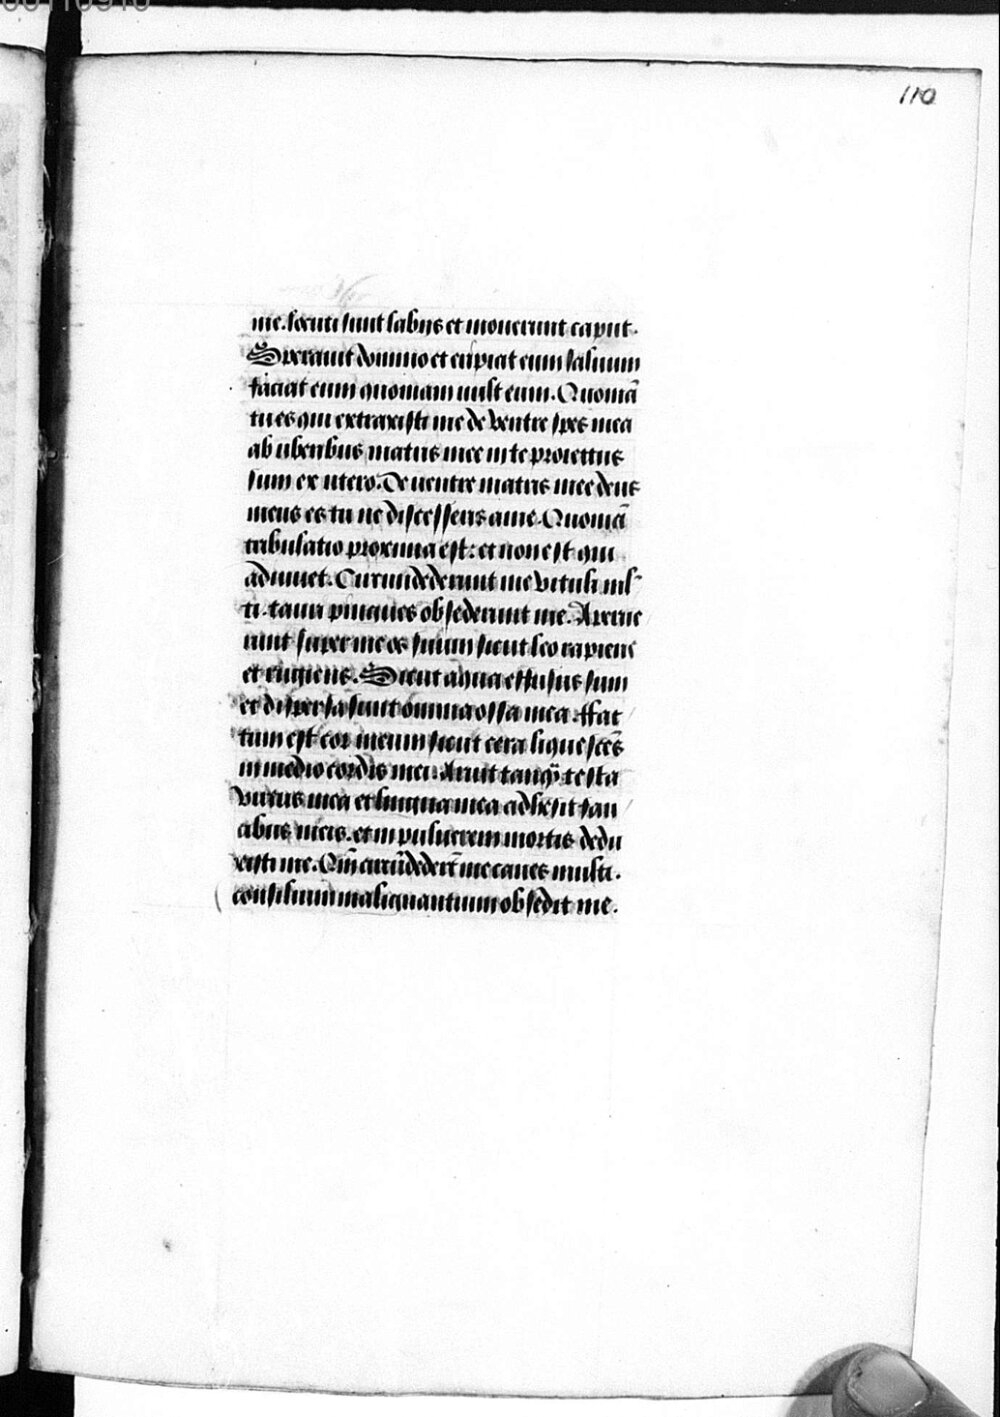 110
me. locuti sunt labijs et mouerunt caput.
Sperauit domino et eripiat eum saluum
faciat eum quoniam uult eum. Quoniā
tu es qui extraxisti me de ventre spes mea
ab uberibus matris mee in te proiectus
sum ex utero. De uentre matris mee deus
meus es tu ne discesseris a me. Quoniā
tribulatio proxima est: et non est qui
adiuuet. Circundederunt me vituli mul
ti. tauri pingues obsederunt me. Aperue
runt super me os suum sicut leo rapiens
et rugiens. Sicut aqua effusus sum
et dispersa sunt omnia ossa mea. ffac
tum est cor meum sicut cera liquescēs
in medio cordis mei. Aruit tanq̄ testa
virtus mea et lingua mea adhesit fau
cibus meis. et in puluerem mortis dedu
xisti me. Qm̄ circūdederūt me canes multi.
consilium malignantium obsedit me.